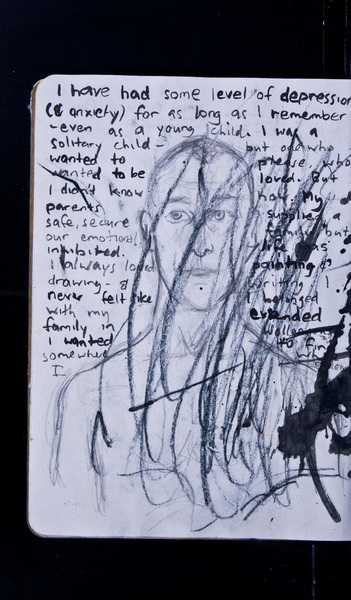 I have had some level of depression
(& anxiety) for as long as I remember
- even as a young child. I was a
solitary child - but one who
wanted to please, who
wanted to be loved. But
I didn't know how. My
parents supplied a
safe, secure family but
our emotional life was
inhibited. painting &
I always loved writing !
drawing - & I belonged
never felt like extended
with my
family in to fi
I wanted
somewhere
I